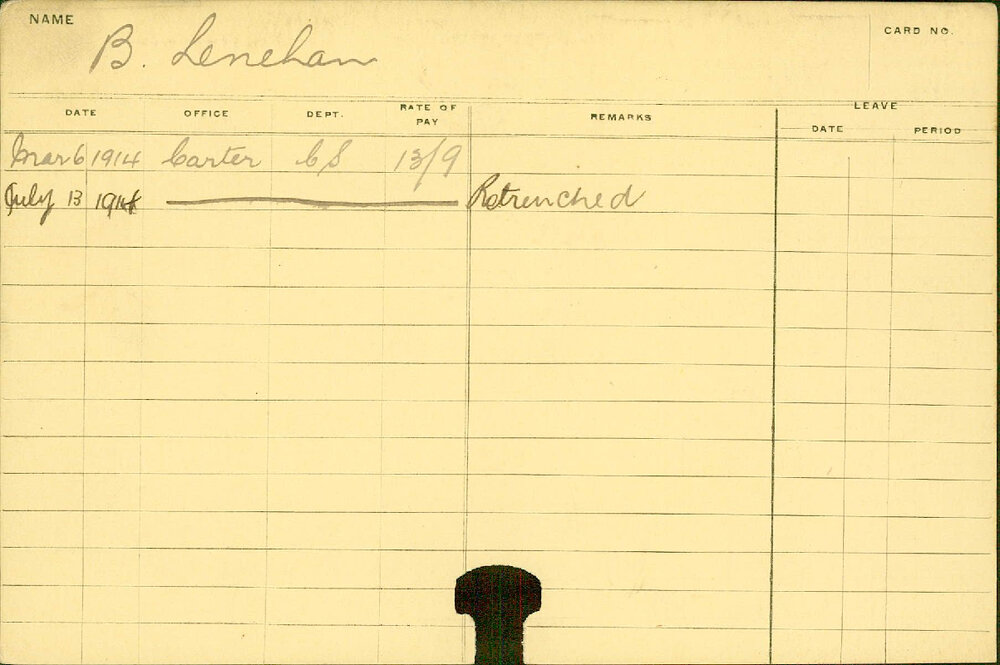 NAME
B. Lenehan
CARD NO.
DATE OFFICE DEPT. RATE OF PAY REMARKS LEAVE
DATE PERIOD
Mar 6 1914 Carter CS 13/9
July 13 1914 Retrenched